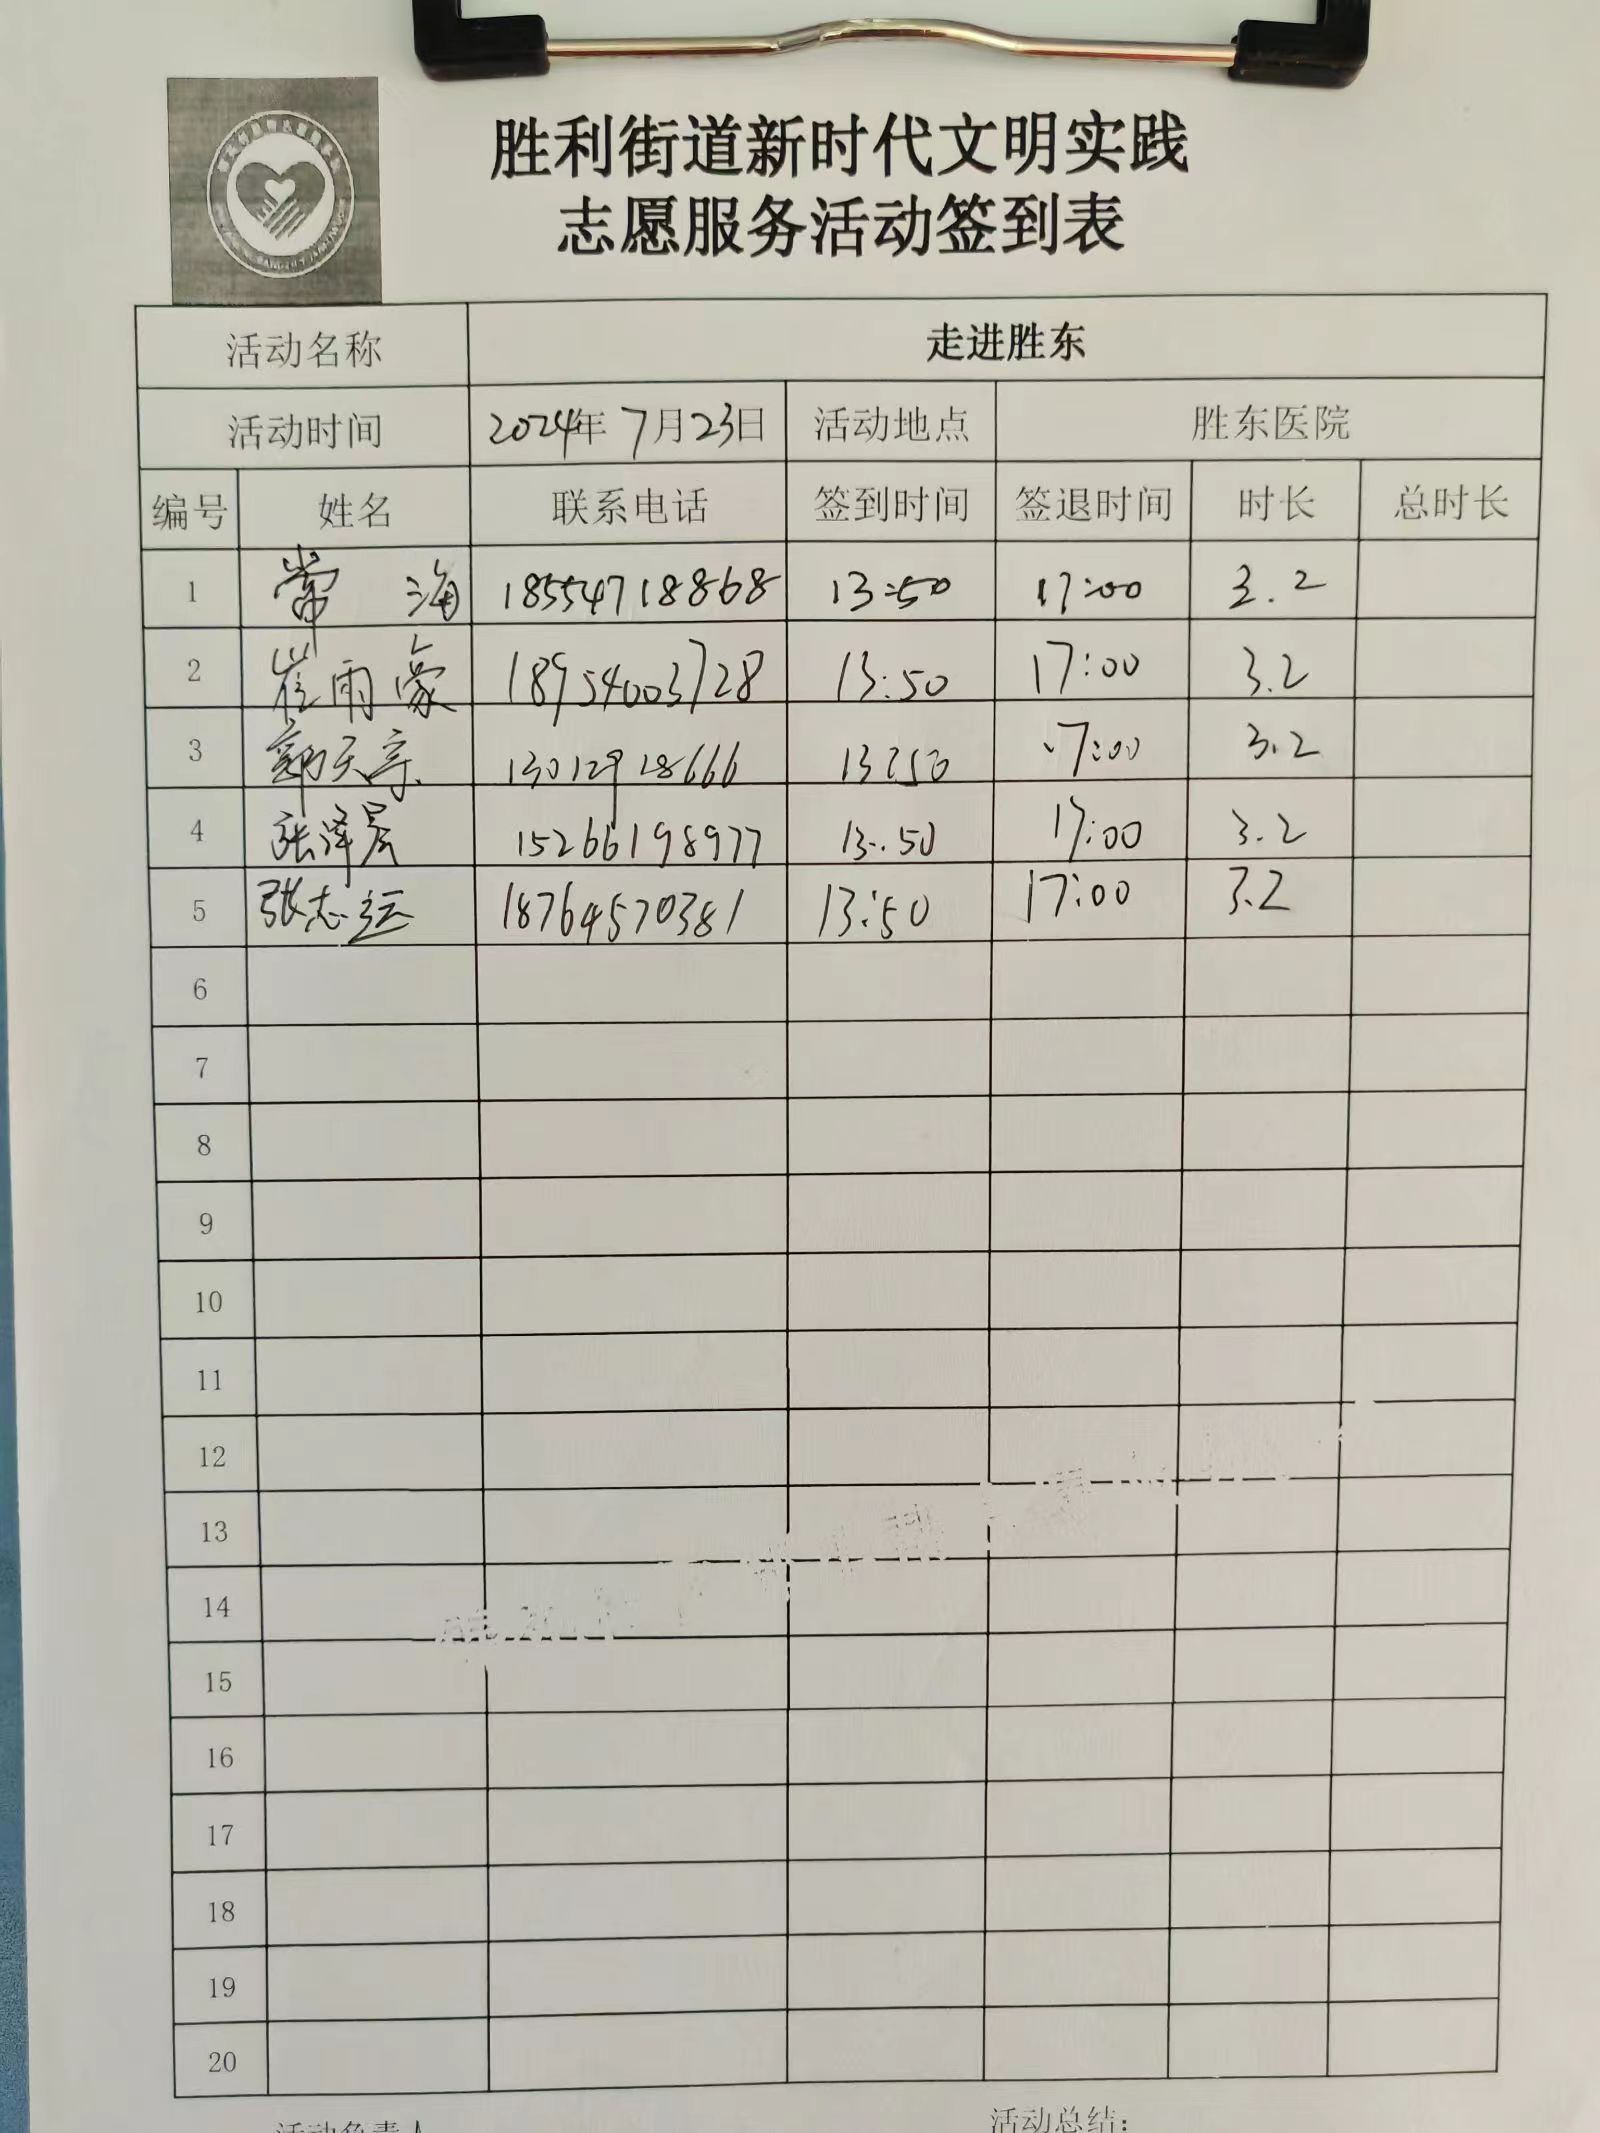 胜利街道新时代文明实践
志愿服务活动签到表
活动名称 走进胜东
活动时间 2024年7月23日 活动地点 胜东医院
编号 姓名 联系电话 签到时间 签退时间 时长 总时长
1 常海 18554718868 13:50 17:00 3.2
2 崔雨豪 18954003728 13:50 17:00 3.2
3 郭天宗 13:50 17:00 3.2
4 张泽晨 15266198977 13:50 17:00 3.2
5 张志运 18764570381 13:50 17:00 3.2
6
7
8
9
10
11
12
13
14
15
16
17
18
19
20
活动负责人 活动总结: